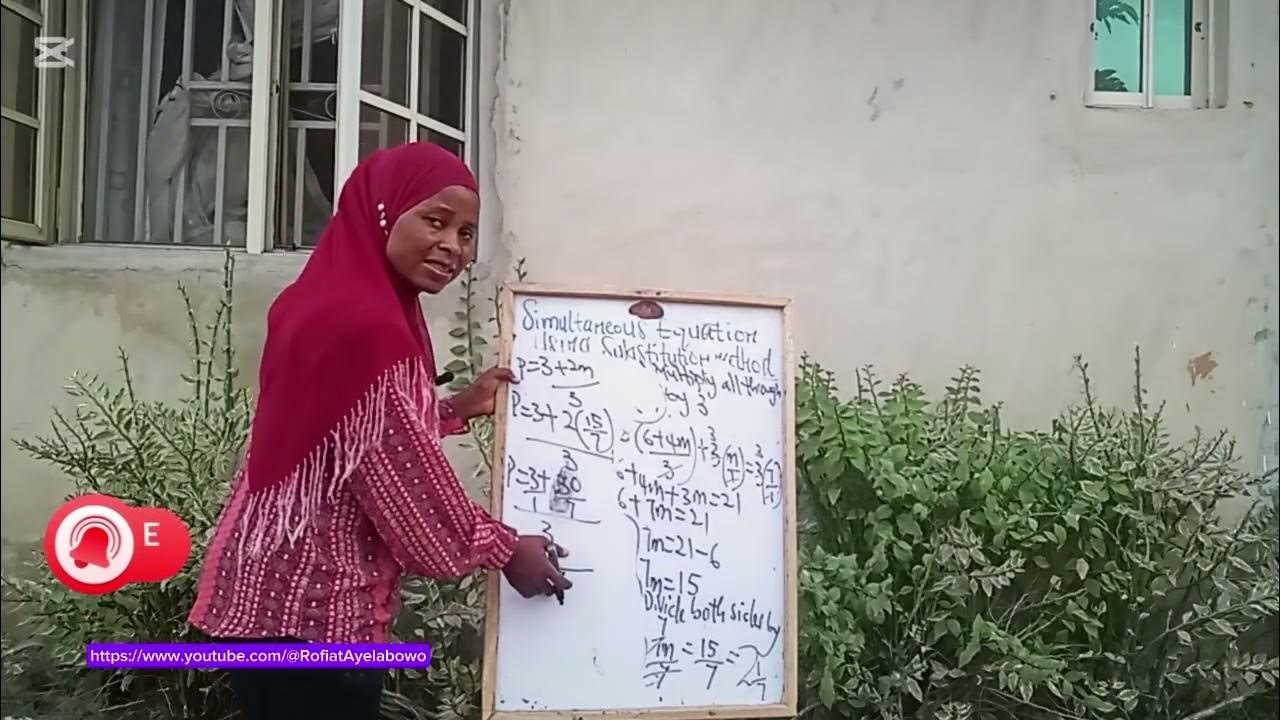 Simultaneous Equation
Using Substitution method
P=3+2m
3
P=3+2(15/7)
3
P=3/1+30/7
3
Multiply all through
by 3
3(6+4m/3)+3/3(m/1)=3/3(7/1)
6+4m+3m=21
6+7m=21
7m=21-6
7m=15
Divide both sides by
7
7m/7=15/7=2 1/7
E
https://www.youtube.com/@RofiatAyelabowo